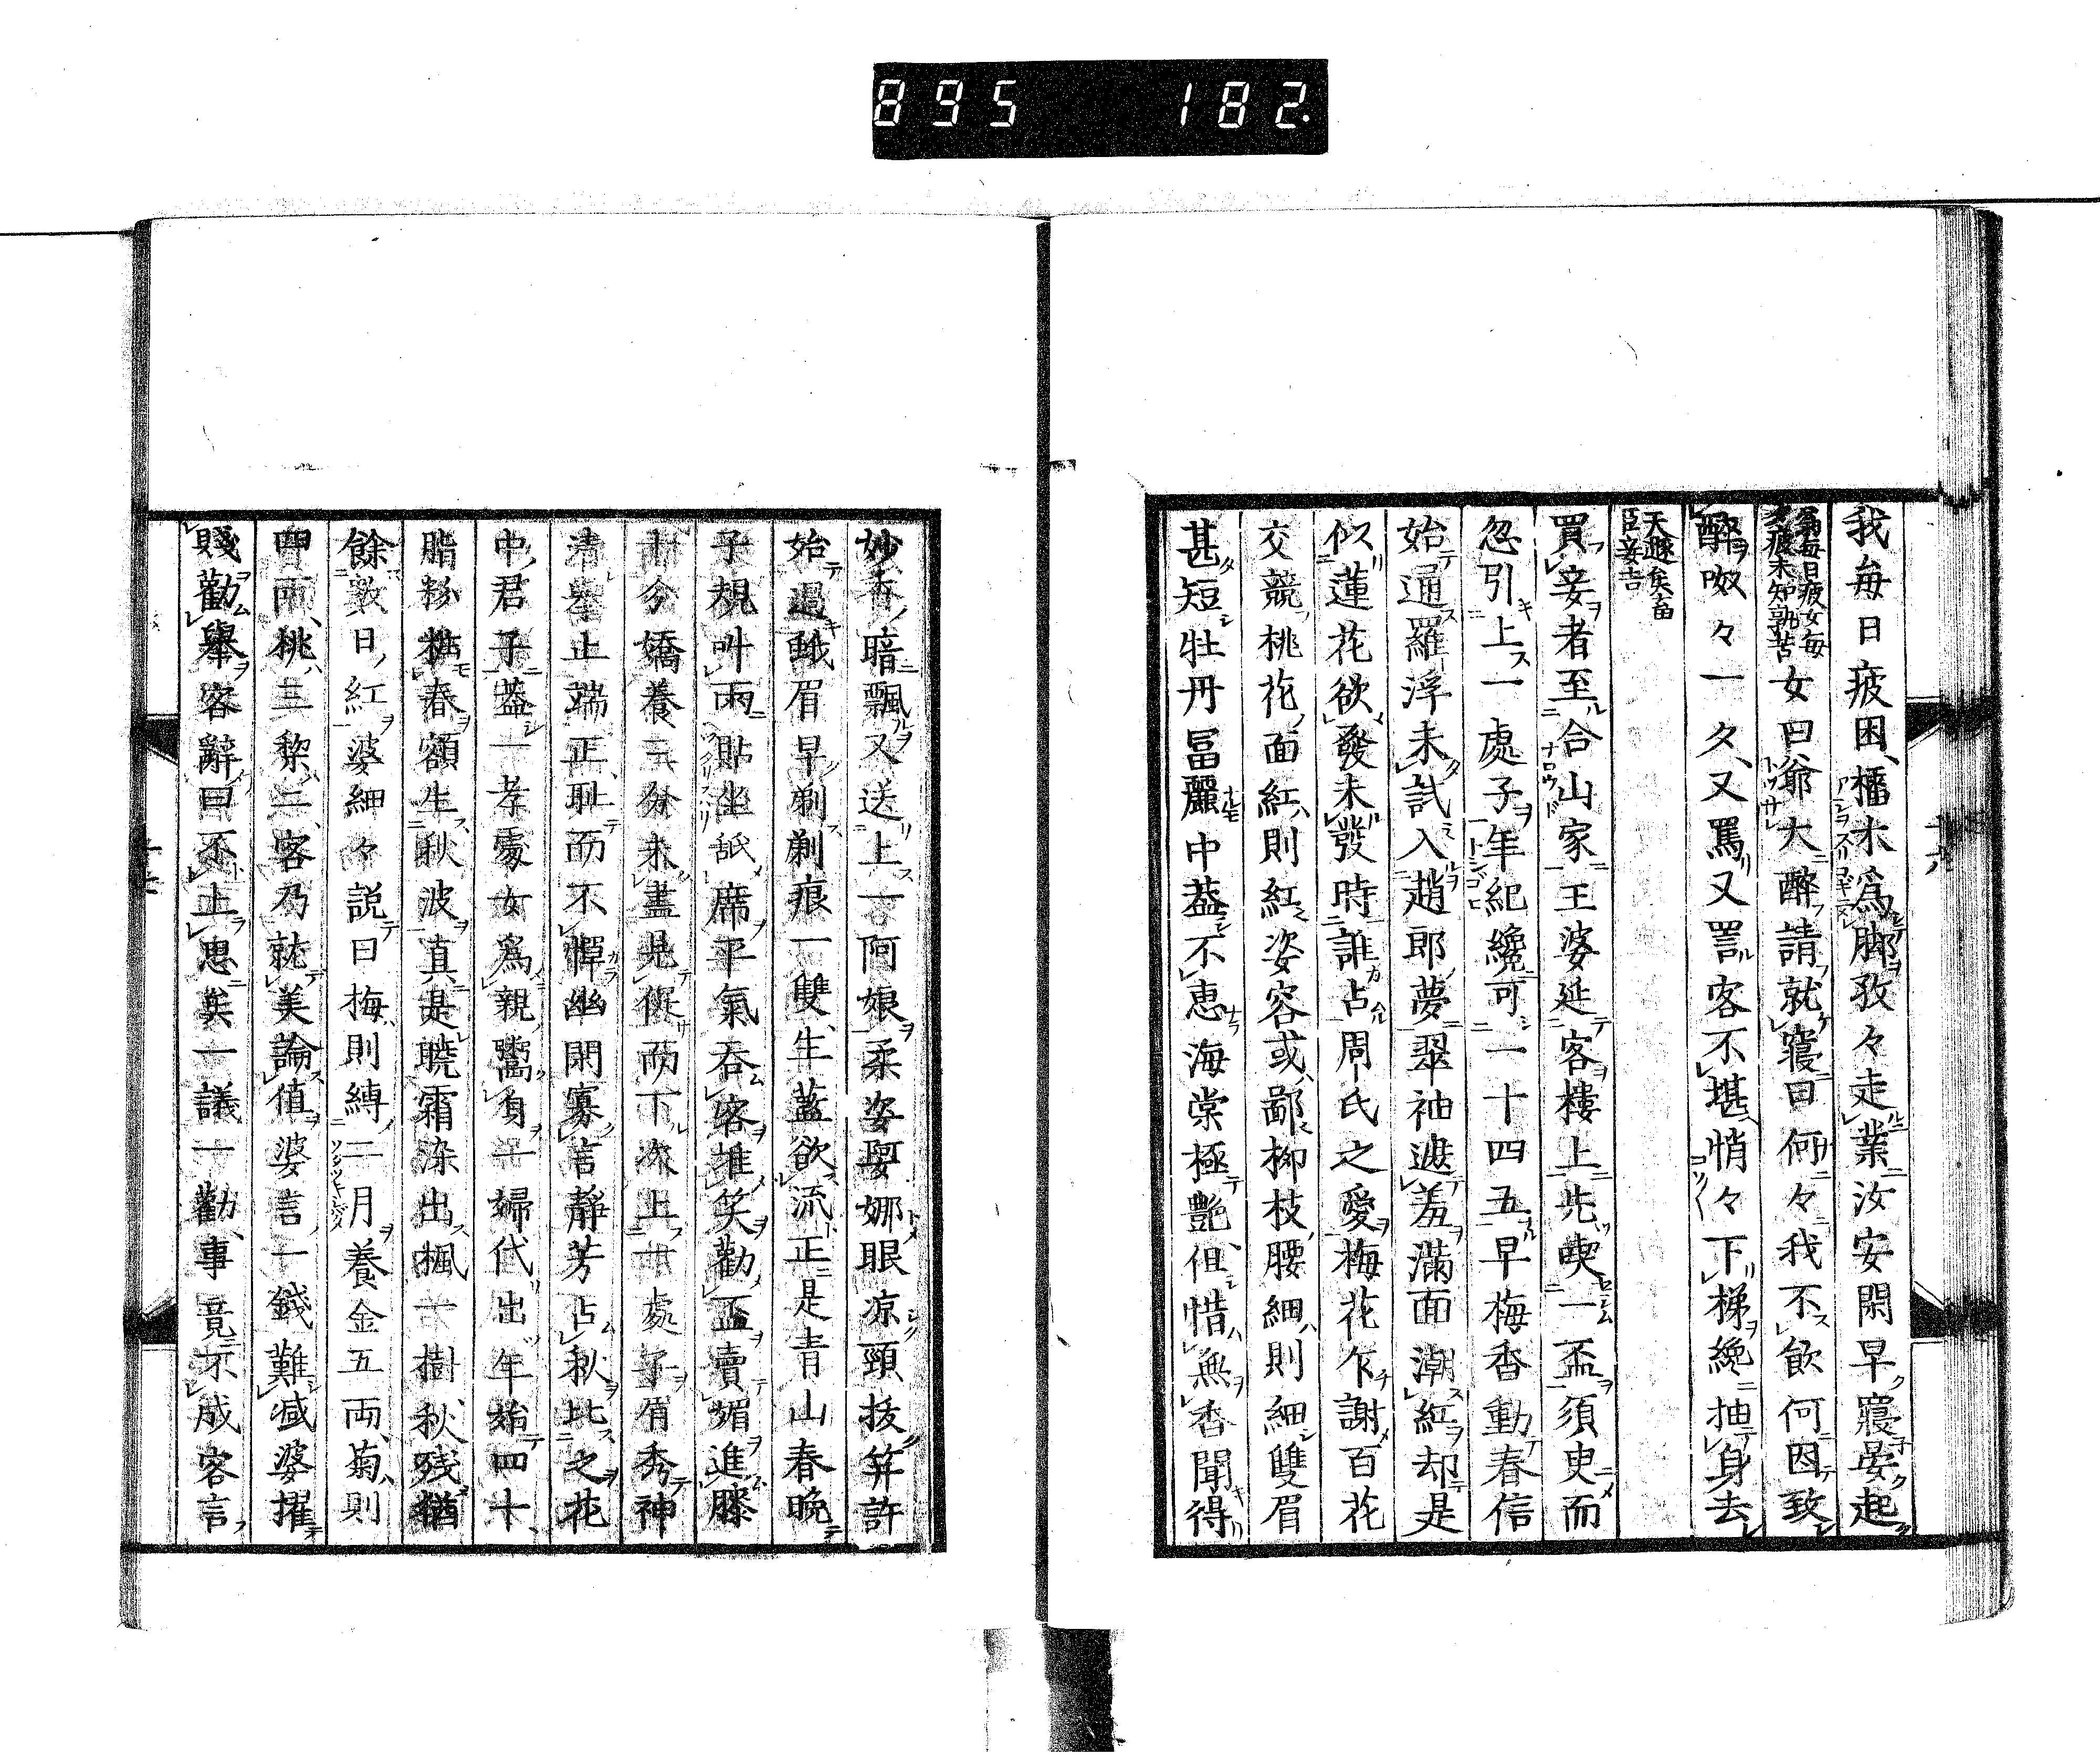 895 182.
我毎日疲困、橋木為脚孜々走業汝安閑早寢晏起
翁毎日疲女毎夕疲未知孰苦女曰爺大醉請就寢曰何々我不飲何因致
醉呶々一夕、又罵又詈客不堪悄々下梯纔抽身去
天遯矣畜臣妾吉
買妾者至合山家王婆延客樓上先喫一盃須臾而
忽引上一處子年紀纔可一十四五早梅香動春信
始通羅浮未試入趙郎夢翠袖遮羞滿面潮紅却是
似蓮花欲發未發時誰占周氏之愛梅花乍謝百花
交競桃花面紅則紅姿容或鄙柳枝腰細則細雙眉
甚短牡丹冨麗中葢不恵海棠極艶、但惜無香聞得
妙香暗飄又送上一阿娘柔姿婴娜眼凉頸抜笄許
始過蛾眉早剃剃痕一雙、生藍欲流正是青山春晩
子規叫雨貼坐舐席平氣吞客堆笑勸盃賣媚進膝
十分嬌養三分未盡見促而下次上一處子脩秀神
清擧止端正、耻而不憚幽閑寡言靜芳占秋比之花
中、君子葢一孝處女為親鬻身一婦代出年始四十、
脂粉粧春額生秋波真是曉霜染出楓一樹、秋殘猶
餘數日紅婆細々説曰梅則縛二月養金五両、菊、則
四両、桃三黎二、客乃就美論值婆言一錢難减婆擢
賤勸舉客辭曰不止思矣一議一勸、事竟不成客言